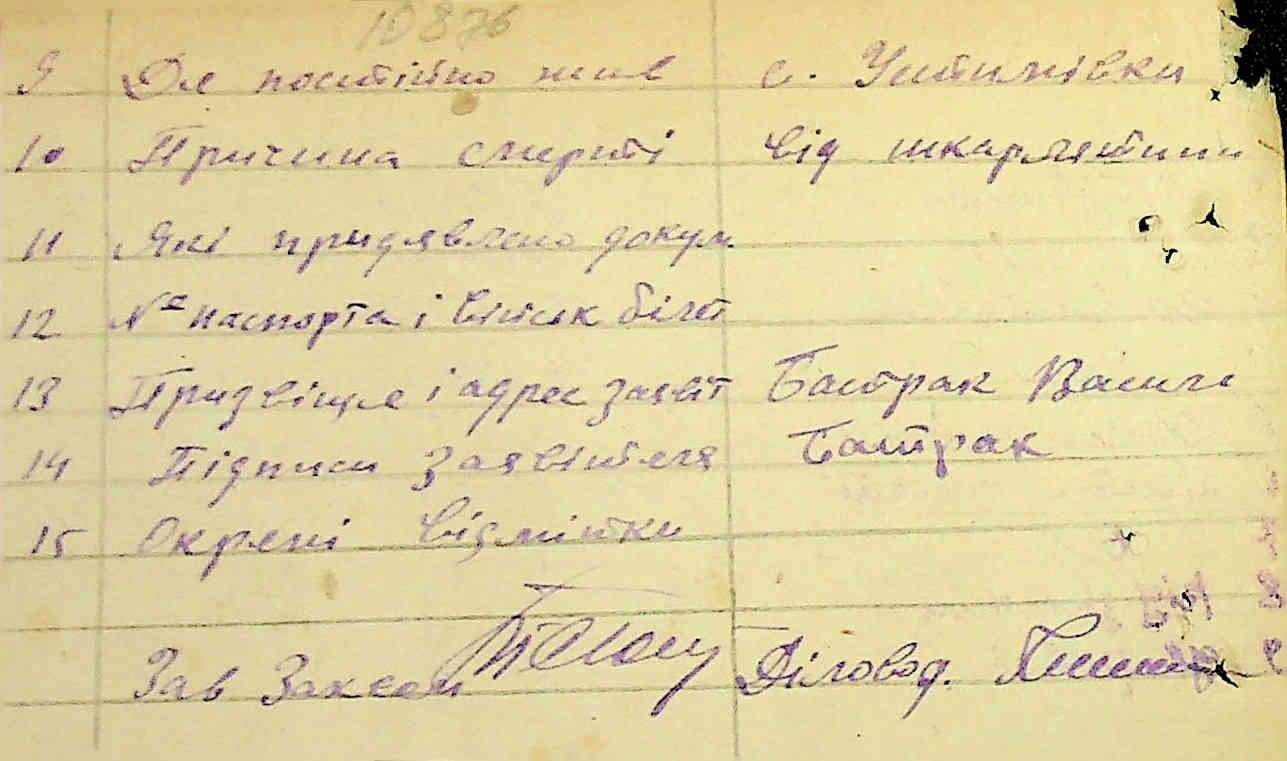 10876
9 Де постійно жив с. Устимівки
10 Причина смерті від шкарлятини
11 Які предявлено докум.
12 № паспорта і військ білет
13 Призвіще і адрес заявіт Бастрак Васил
14 Підписи заявітеля Бастрак
15 Окремі відмітки
Зав Загсом Діловод.